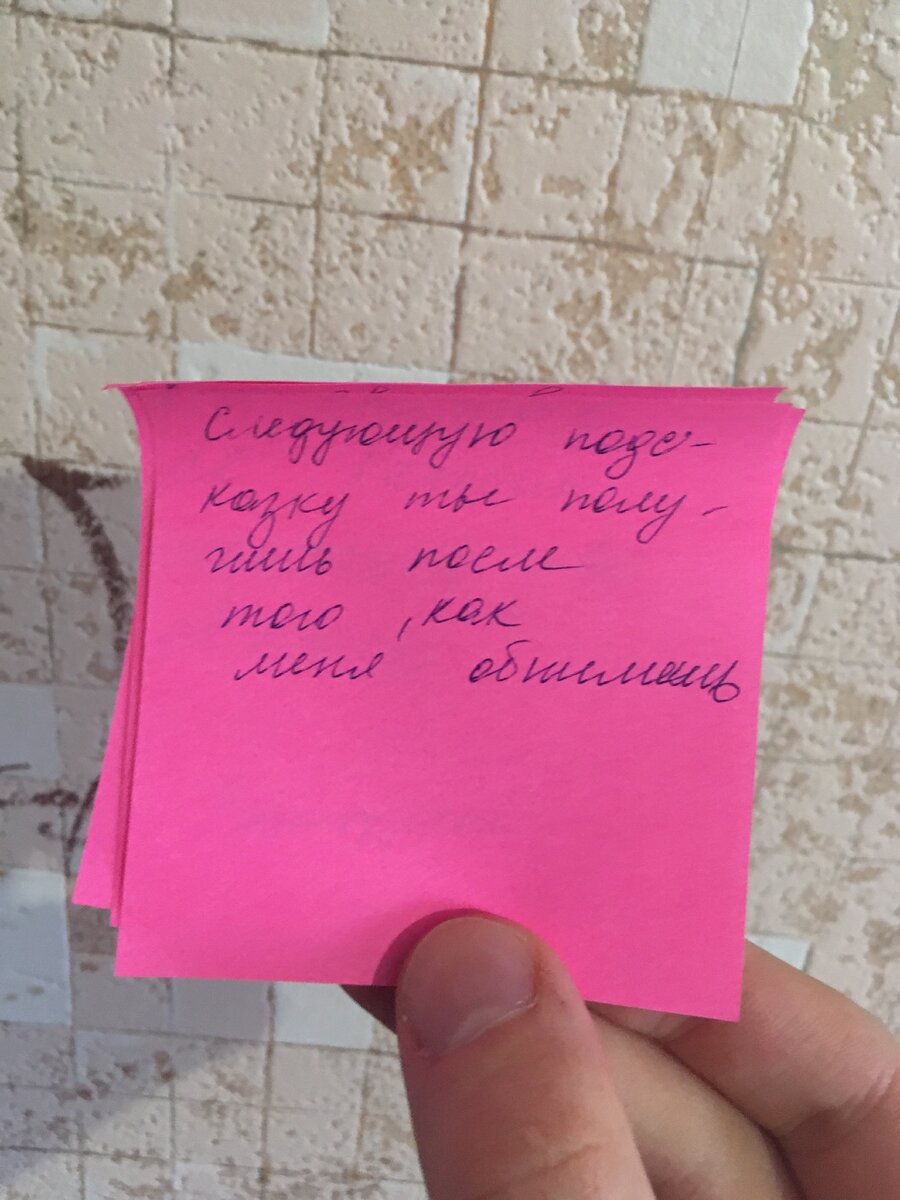 Следующую подс-
казку ты полу-
чишь после
того, как
меня обнимешь